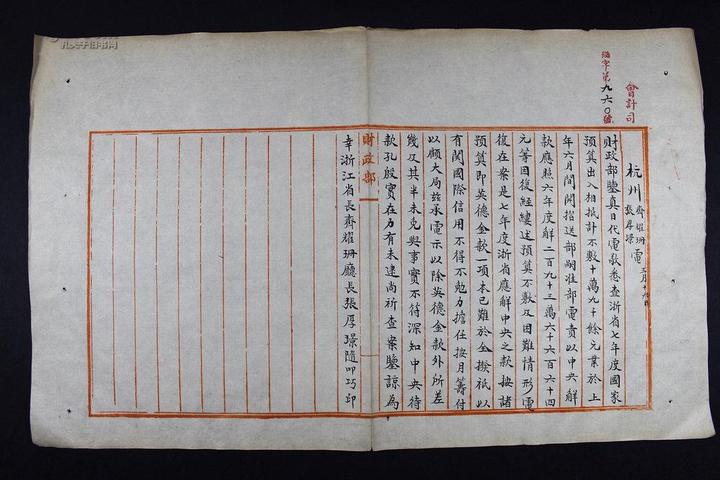 會計司
編字第九六〇號
杭州 齊耀珊 張厚璟 電 三月十九日
財政部鑒真日代電敬悉查浙省七年度國家
預算出入相抵計不敷十萬九千餘元業於上
年六月間開摺送部嗣准部電責以中央解
款應照六年度解二百九十三萬六千六百六十四
元等因復經縷述預算不敷及困難情形電
復在案是七年度浙省應解中央之款按諸
預算即英德金款一項本已難於全撥祇以
有關國際信用不得不勉力擔任按月籌付
以顧大局茲承電示以除英德金款外所差
幾及其半未免與事實不符深知中央待
款孔殷實在力有未逮尚祈查案鑒諒為
財政部
幸浙江省長齊耀珊廳長張厚璟隨叩巧印